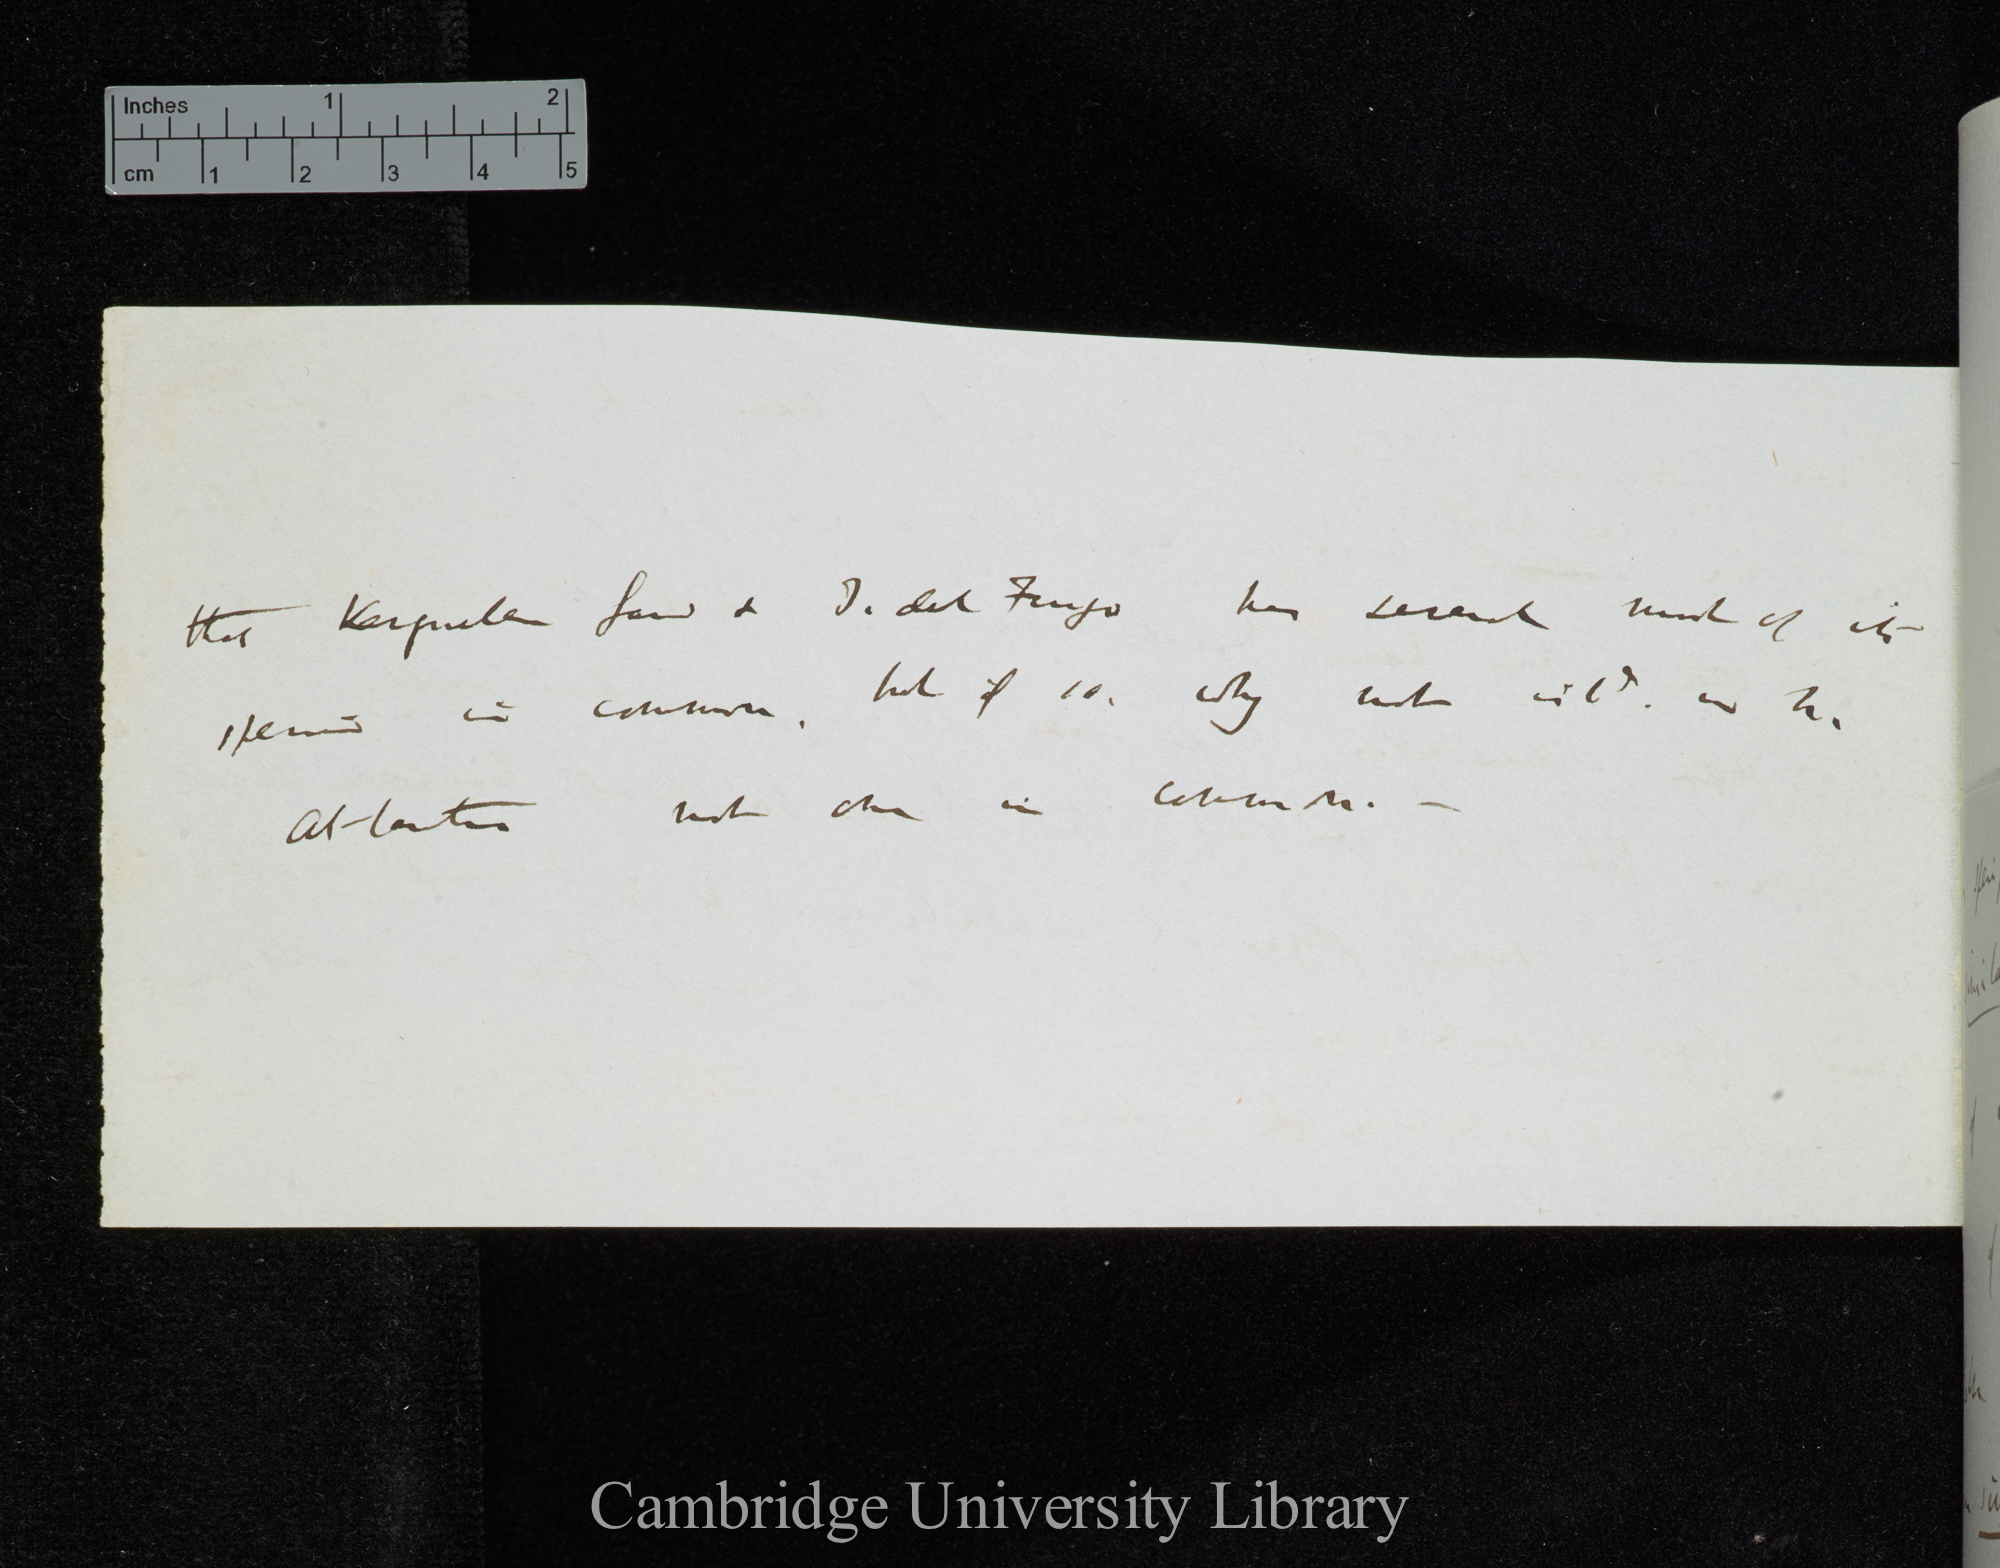 Inches 1 2
cm 1 2 3 4 5
that Kerguelen Land & T. del Fuego has several most of its
species in common, but if so, why not isl^d. in the
Atlantic not one in common. —
Cambridge University Library